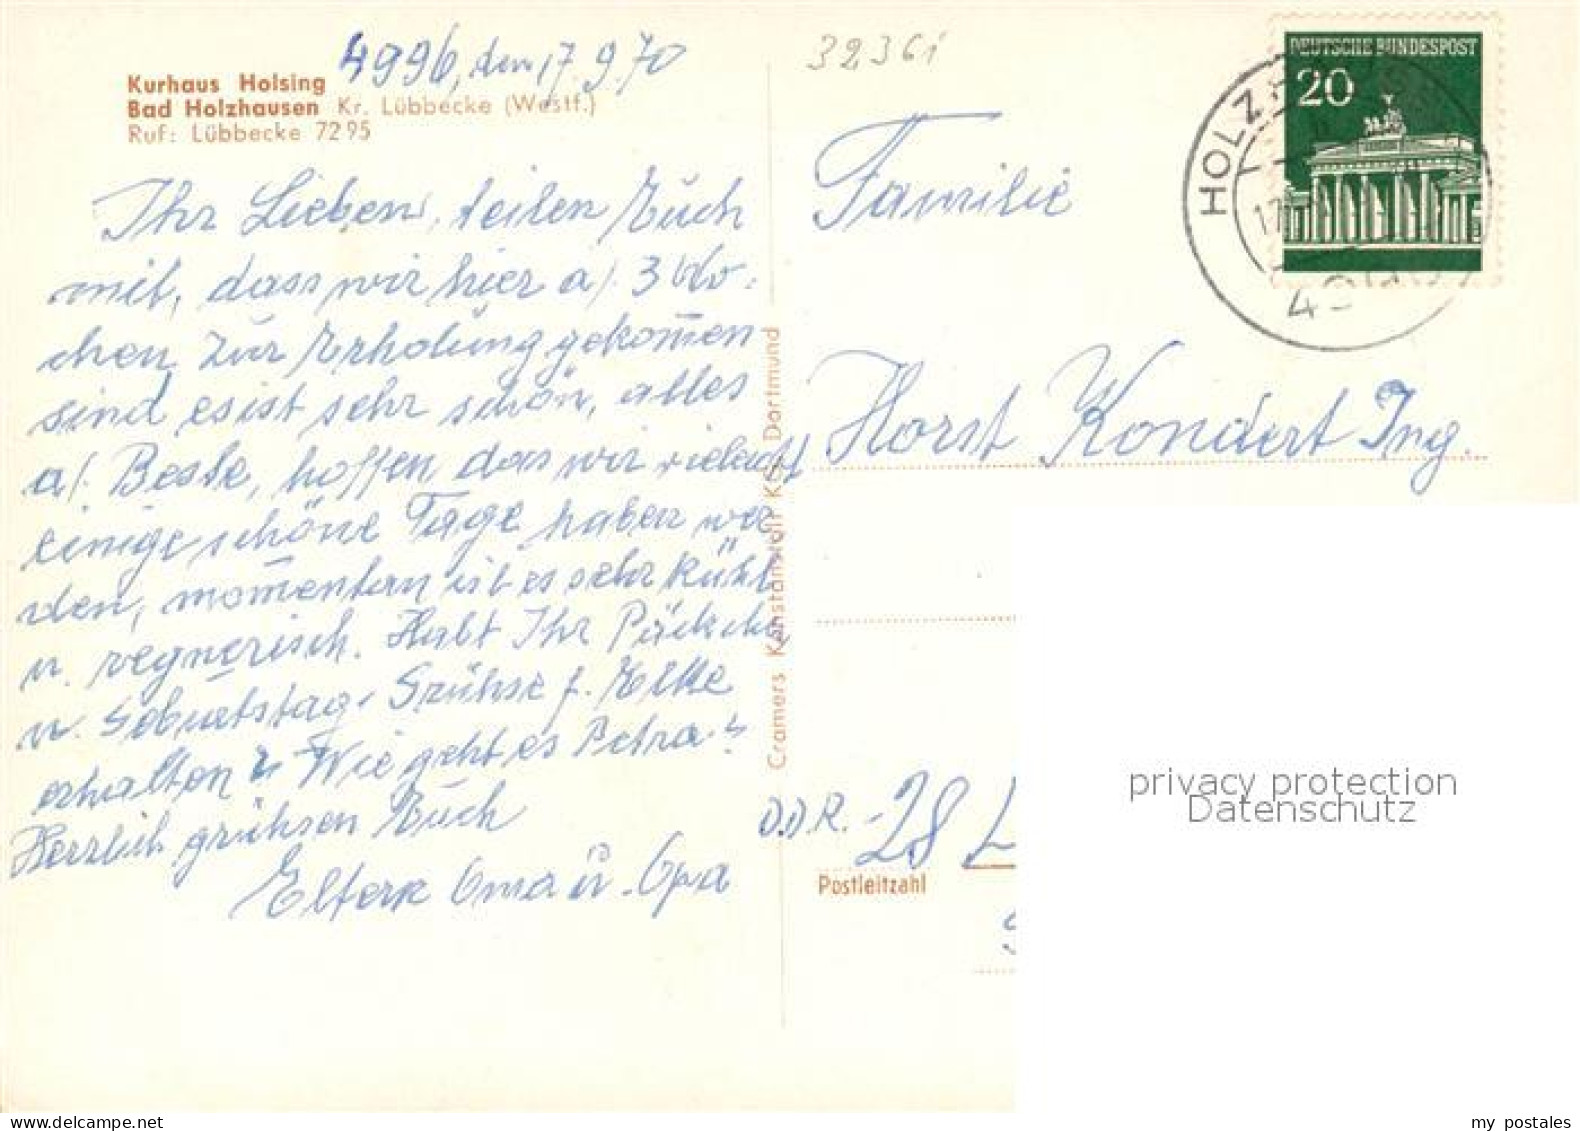 4996, den 17.9.70
Kurhaus Holsing
Bad Holzhausen Kr. Lübbecke (Westf.)
Ruf: Lübbecke 72 95
Ihr Lieben, teilen Euch
mit, dass wir hier a/. 3 Wo-
chen zur Erholung gekom̄en
sind es ist sehr schön, alles
a/. Beste, hoffen das wir vieleicht
einige schöne Tage haben wer
den, mom̄entan ist es sehr kühl
u. regnerisch. Habt Ihr Päckchen
u. Geburtstag. Grühse f. Elke
erhalten? Wie geht es Petra?
Herzlich grühsen Euch
Eltern Oma u. Opa
Cramers Kunstanstalt KG, Dortmund
3236i
DEUTSCHE BUNDESPOST
20
HOLZ
Familie
Horst Kondert Ing.
D.D.R. - 28 L
Postleitzahl
privacy protection
Datenschutz
my postales
www.delcampe.net